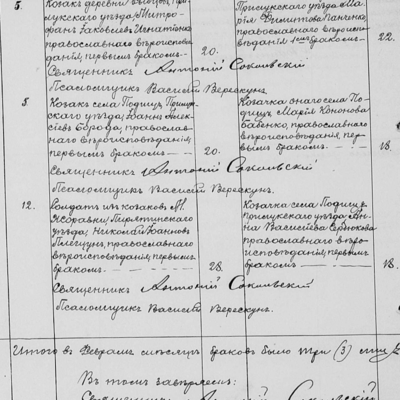 5. Козакъ деревни
лукскаго уѣзда, Митро-
фанъ Іаковлевъ Игнатенко,
православнаго вѣроиспове-
данія, первымъ бракомъ. 20.
Прилукскаго уѣзда Ма-
рія Димитрова Панченко,
православнаго вѣроиспо-
вѣданія 1-мъ бракомъ. 22.
Священникъ Антоній Сокольскій
Псаломщикъ Василій Верескунъ.
5. Козакъ села Подищъ, Прилук-
скаго уѣзда, Іоаннъ Алек-
сіевъ Борода, православ-
наго вѣроисповѣданія,
первымъ бракомъ 20.
Козачка онаго села По-
дищъ Марія Кононова
Бабенко, православнаго
вѣроисповѣданія, пер-
вымъ бракомъ 18.
Священникъ Антоній Сокольскій
Псаломщикъ Василій Верескунъ.
12. Солдатъ изъ козаковъ М.
Яготынъ
уѣзда, Николай Іоанновъ
православнаго
вѣроисповѣданія, первымъ
бракомъ 28.
Козачка села Подищъ,
Прилукскаго уѣзда, Ан-
на Василіева Сердюкова
православнаго вѣро-
исповѣданія, первымъ
бракомъ 18.
Священникъ Антоній Сокольскій
Псаломщикъ Василій Верескунъ.
Итого въ Февралѣ мѣсяцѣ браковъ было три (3)
Въ томъ завѣряемъ:
Священникъ Антоній Сокольскій